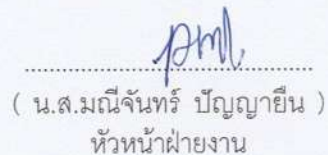 ( น.ส.มณีจันทร์ ปัญญายืน )
หัวหน้าฝ่ายงาน